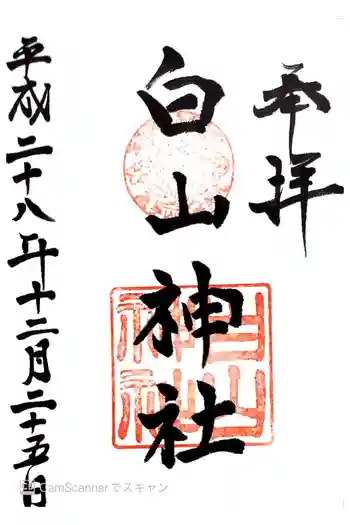 奉拝
白山神社
白山
神社
平成二十八年十二月二十五日
CamScannerでスキャン